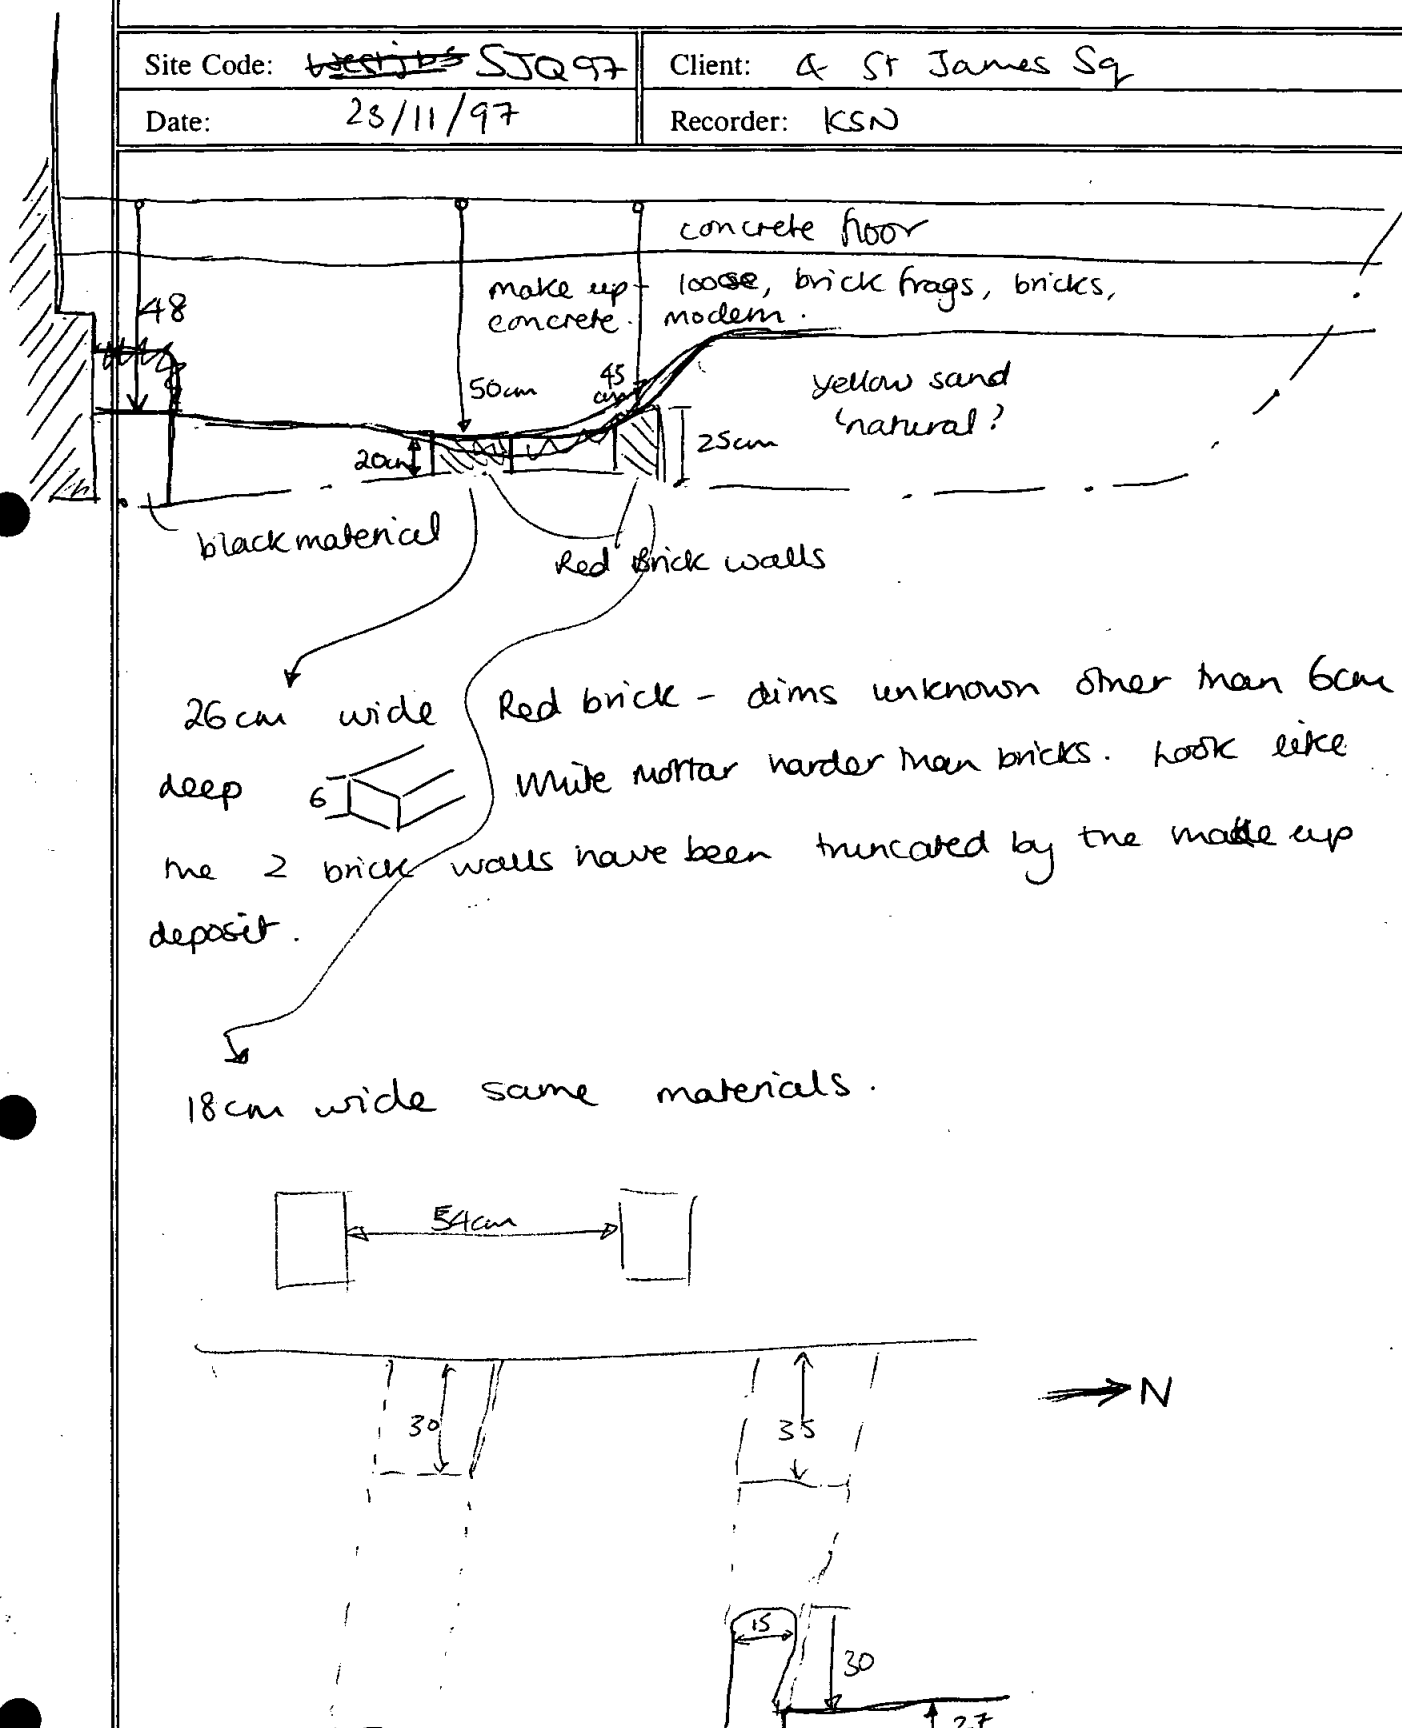 Site Code: SJQ97 Client: 4 St James Sq
Date: 23/11/97 Recorder: KSN
concrete floor
make up - loose, brick frags, bricks,
concrete. modern.
48
50cm
45
cm
yellow sand
'natural?
20cm
25cm
black material
Red Brick walls
26cm wide Red brick - dims unknown other than 6cm
deep 6 White mortar harder than bricks. Look like
the 2 brick walls have been truncated by the make up
deposit.
18cm wide same materials.
54cm
N
30
35
15
30
27